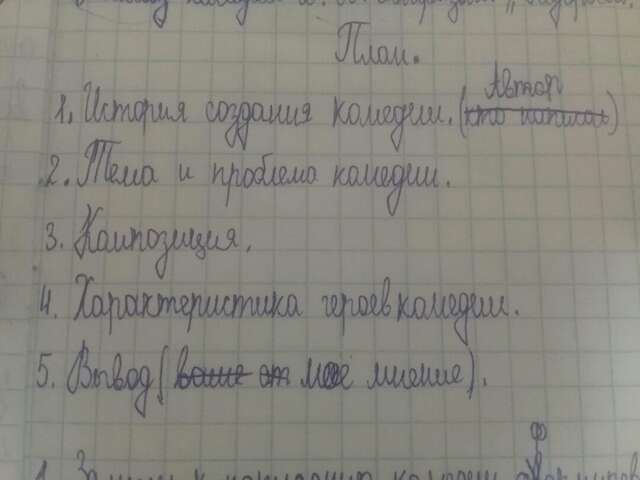 План.
Автор
1. История создания комедии. (кто написал)
2. Тема и проблема комедии.
3. Композиция.
4. Характеристика героев комедии.
5. Вывод (ваше от моё мнение).